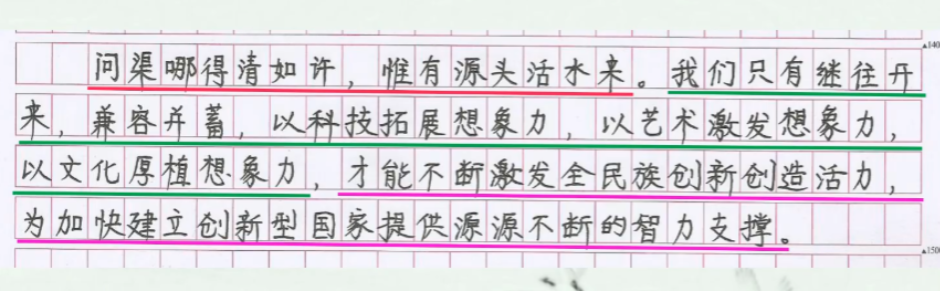 问渠哪得清如许，惟有源头活水来。我们只有继往开
来，兼容并蓄，以科技拓展想象力，以艺术激发想象力，
以文化厚植想象力，才能不断激发全民族创新创造活力，
为加快建立创新型国家提供源源不断的智力支撑。